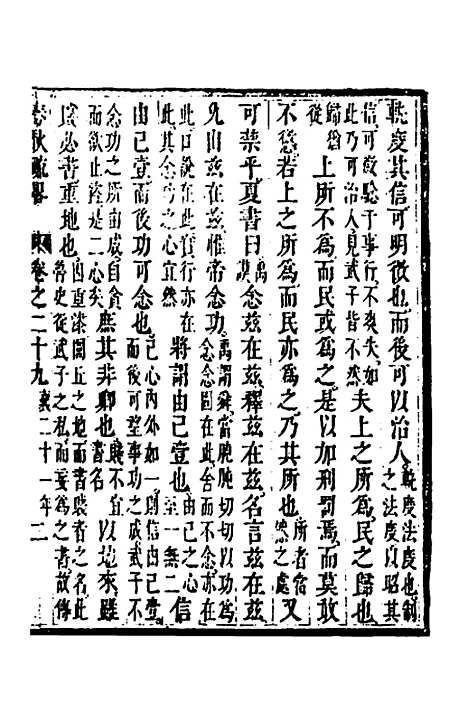 軌度其信可明徵也而後可以治人軌度法度也制之法度以昭其
信可徵驗于事行不爽失如此乃可治人見武子皆不然夫上之所爲民之歸也
歸猶從上所不爲而民或爲之是以加刑罰焉而莫敢
不懲若上之所爲而民亦爲之乃其所也所者當然之處又
可禁乎夏書曰禹謨念兹在兹釋兹在兹名言兹在兹
允出兹在兹惟帝念功禹謂舜當胞胞切切以功爲念念固在此舍而不念亦在
此口說在此實行亦在此其念功之心宜然將謂由己壹也由己之心至一無二信
由己壹而後功可念也己心内外如一則信由己壹而後可望事功之成武子不
念功之所由成自食而欲止盜是二心矣庶其非卿也書名賤不宜以地來雖
賤必書重地也因重漆閭丘之地而書賤者之名此魯史從武子之私而妄爲之書故傳
春秋疏畧 卷之二十九 襄二十一年 二